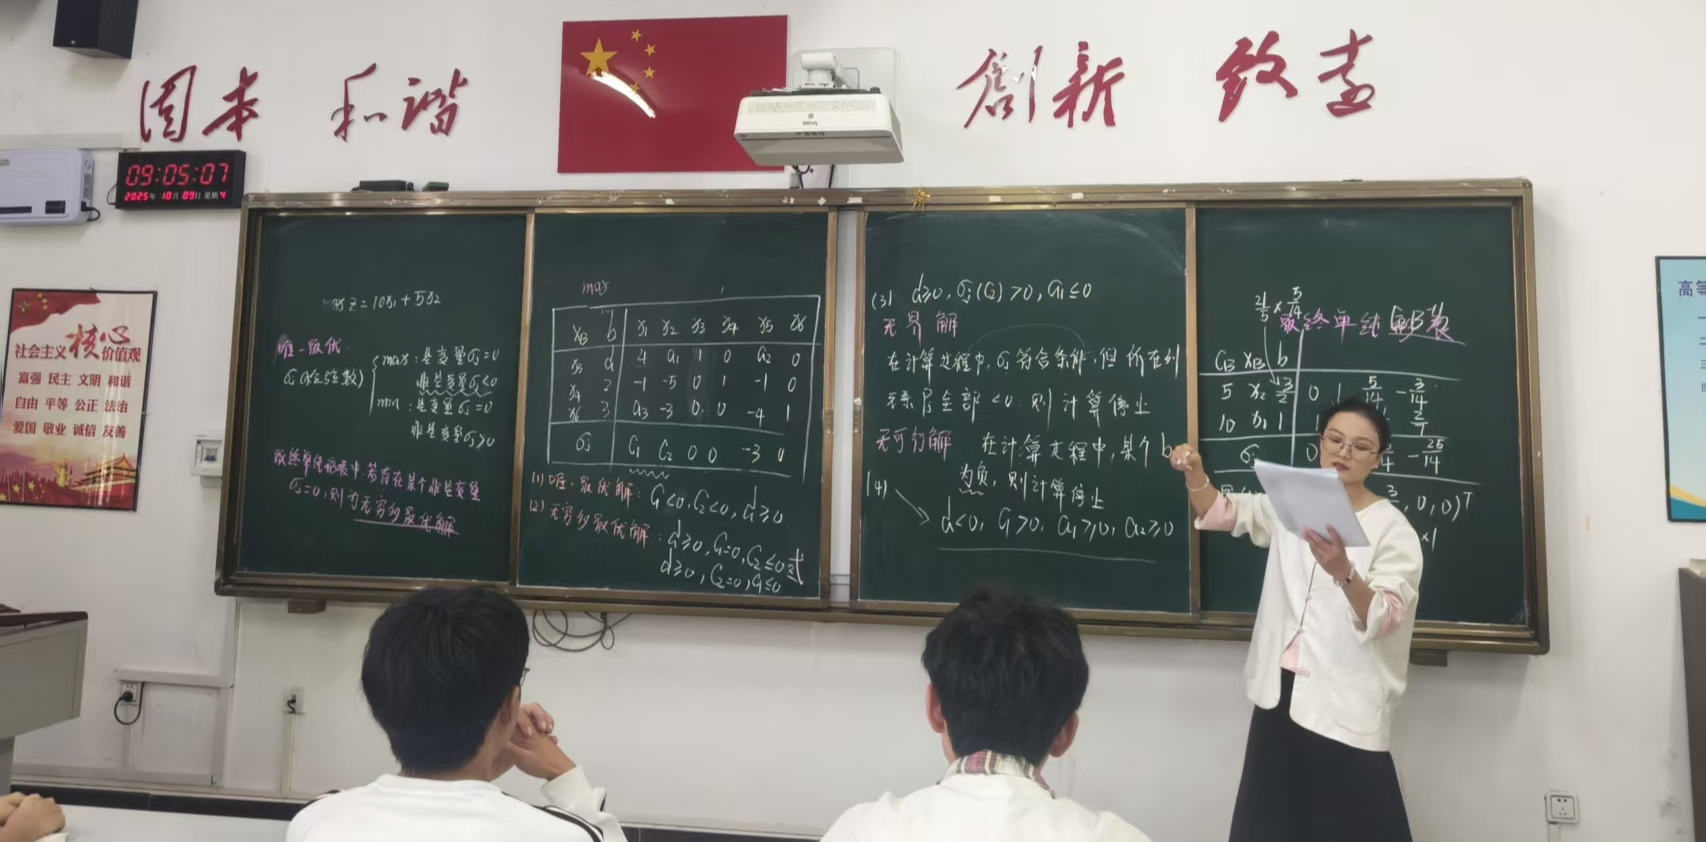 固本 和谐 创新 致远
09:05:07
2025年 10月 09日 星期4
BENQ
社会主义核心价值观
富强 民主 文明 和谐
自由 平等 公正 法治
爱国 敬业 诚信 友善
高等
max z = 10x₁ + 5x₂
唯一最优
σⱼ(检验数) { max: 基变量σⱼ=0
非基变量σⱼ<0
min: 基变量σⱼ=0
非基变量σⱼ>0
最终单纯形表中若存在某个非基变量
σⱼ=0, 则为无穷多最优解
max
x_B b x₁ x₂ x₃ x₄ x₅ x₆
x₃ d 4 a₁ 1 0 a₂ 0
x₄ 2 -1 -5 0 1 -1 0
x₆ 3 a₃ -3 0 0 -4 1
σⱼ C₁ C₂ 0 0 -3 0
(1) 唯一最优解: C₁<0, C₂<0, d≥0
(2) 无穷多最优解: d≥0, C₁=0, C₂≤0 或
d≥0, C₂=0, C₁≤0
(3) d≥0, σⱼ(C₂)>0, a₁≤0
无界解
在计算过程中, σⱼ符合条件, 但所在列
系数全部<0, 则计算停止
无可行解 在计算过程中, 某个b
为负, 则计算停止
(4) d<0, C₁>0, a₁≥0, a₂≥0
21/5 × 5/14
最终单纯形表
C_B x_B b
5 x₂ 3/2 0 1 5/14 -3/14
10 x₁ 1 2/7
σⱼ 0 -25/14
, 0, 0)ᵀ
×1